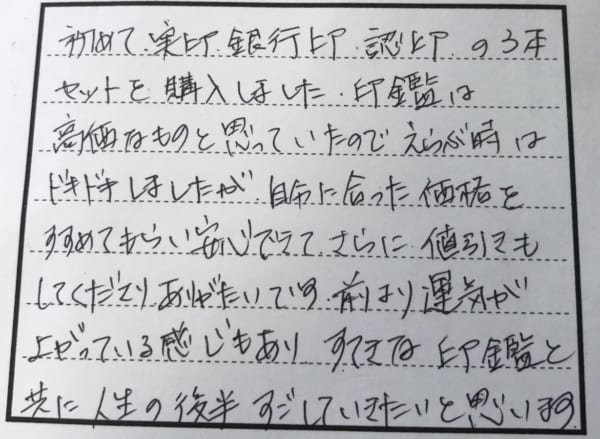 初めて 実印 銀行印 認印 の3本
セットを 購入しました. 印鑑は
高価なものと思っていたので えらぶ時は
ドキドキしましたが 自分に合った価格を
すすめてもらい 安心できて さらに 値引きも
してくださり ありがたいです 前より 運気が
上がっている感じもあり すてきな 印鑑と
共に 人生の後半 すごしていきたいと思います